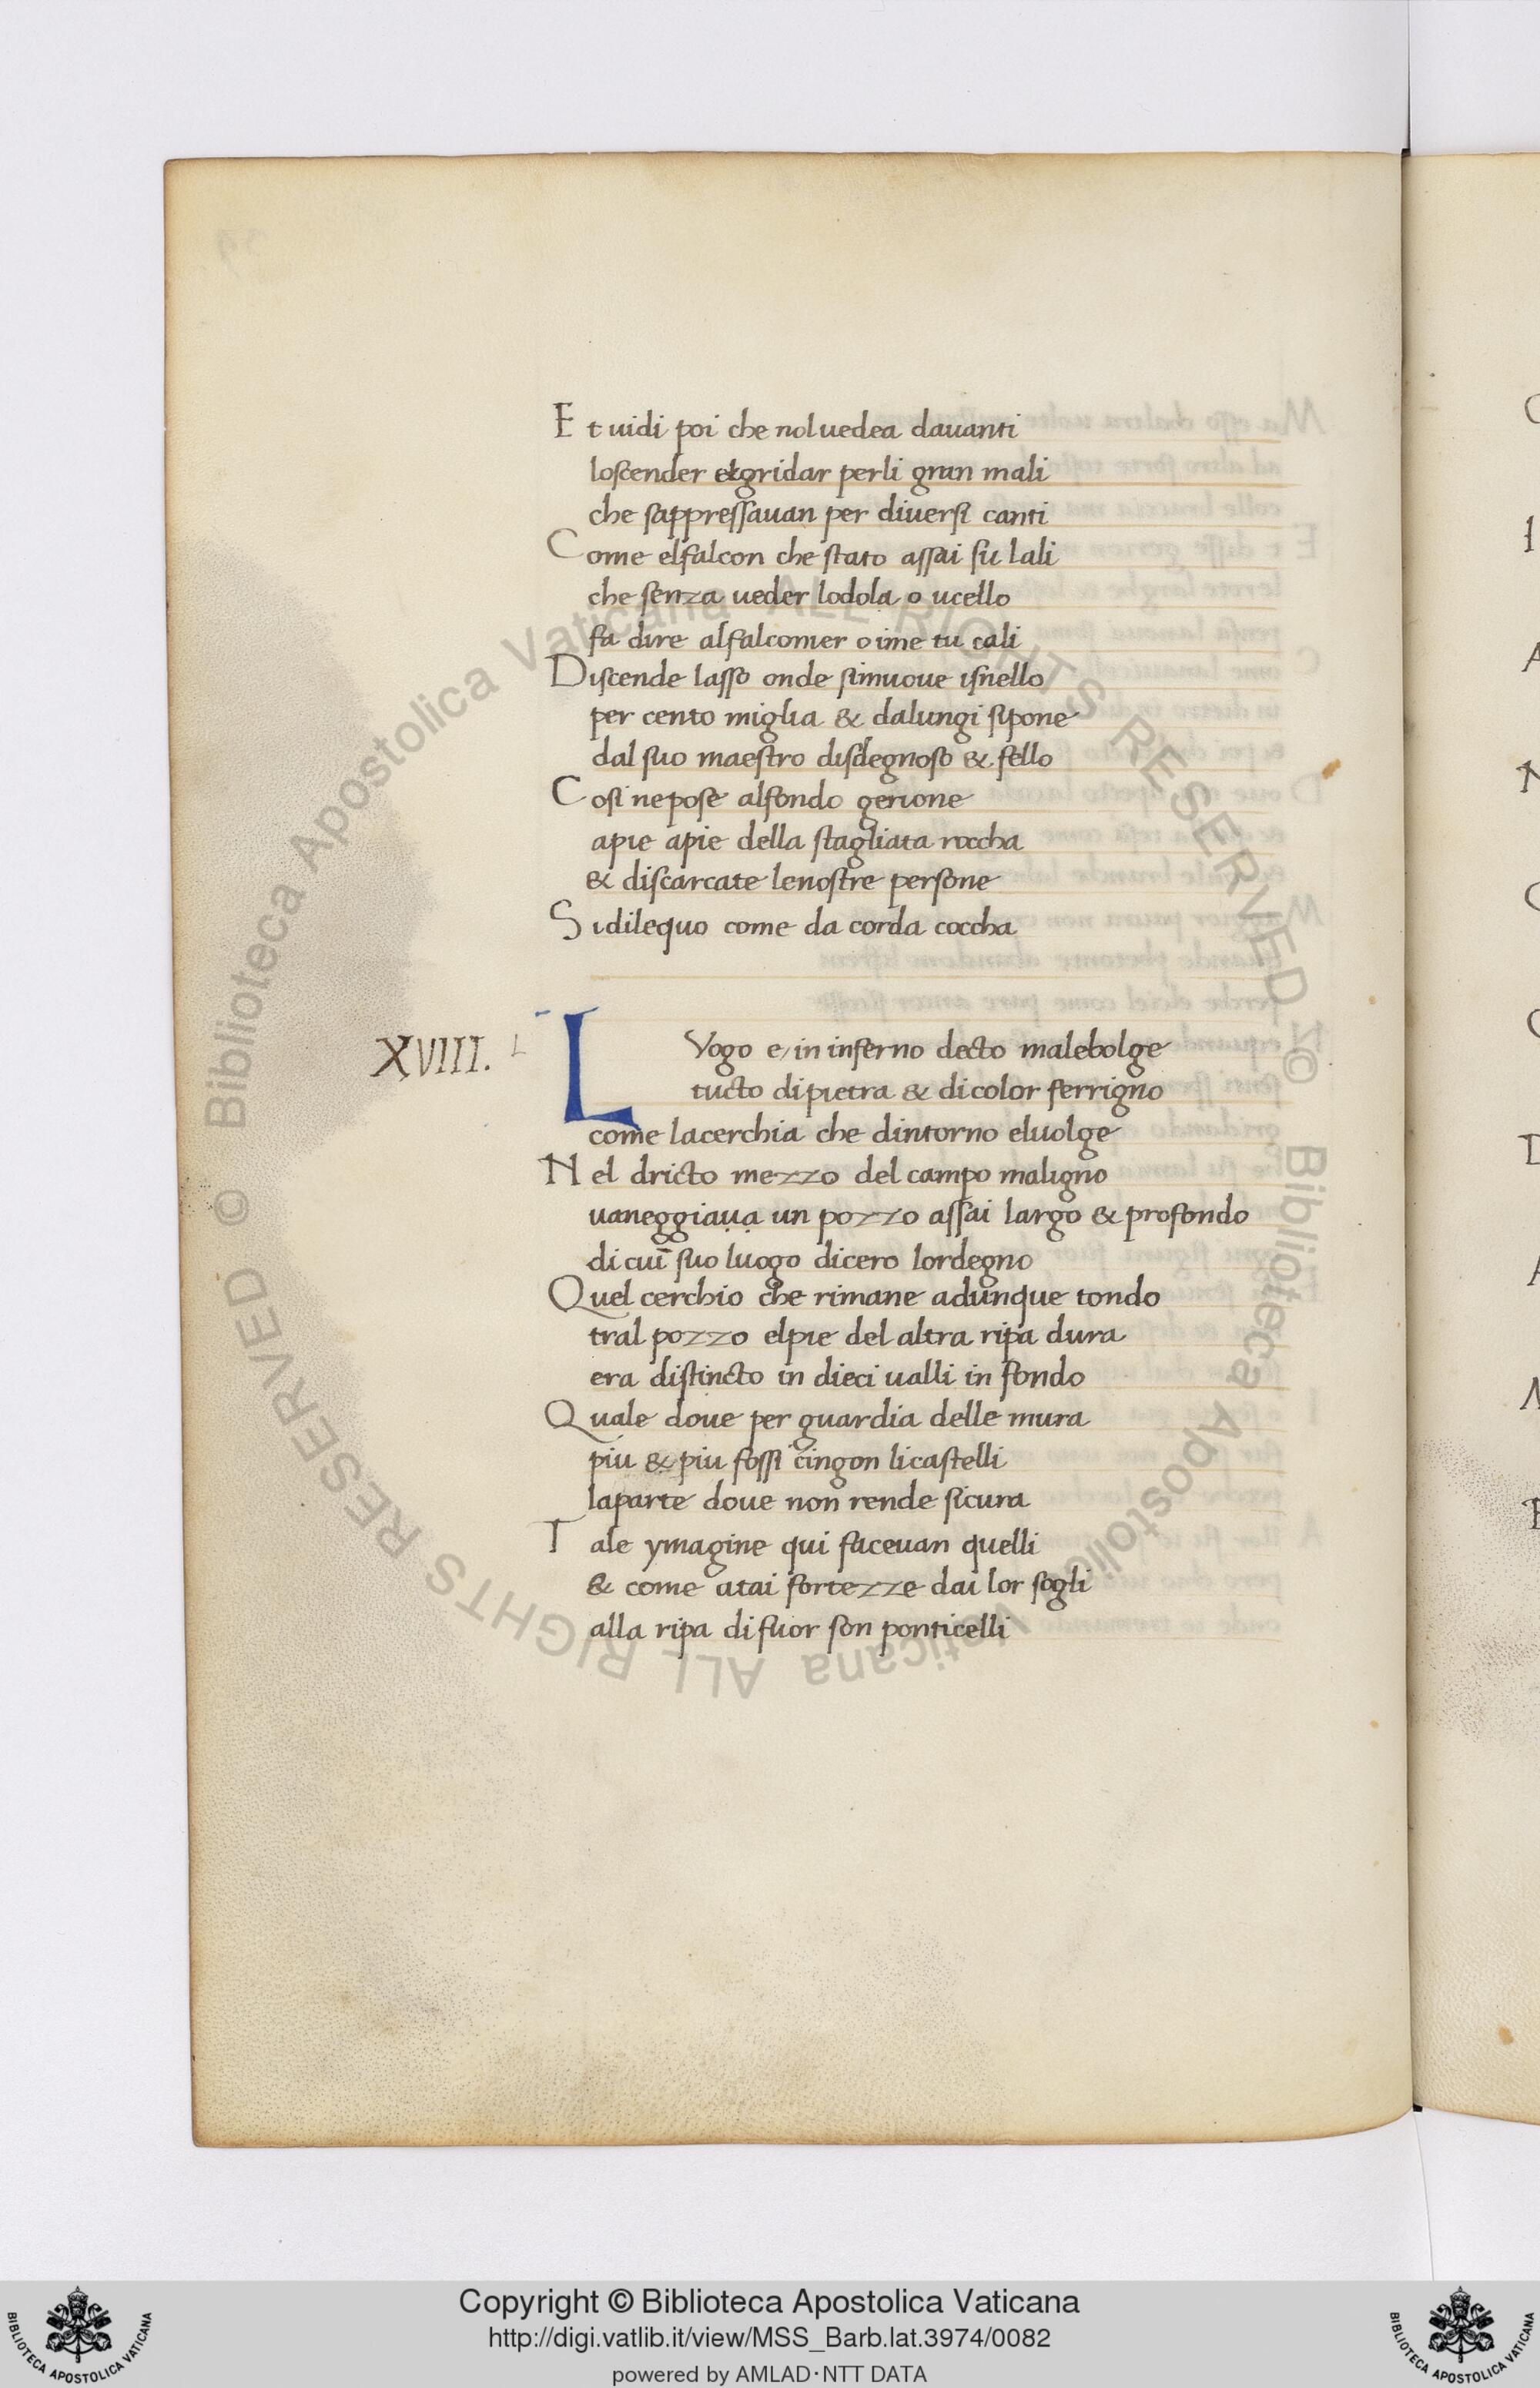 Et uidi poi che nol uedea dauanti
loscender et gridar perli gran mali
che sappressauan per diuersi canti
Come elfalcon che stato assai su lali
che senza ueder lodola o ucello
fa dire alfalconier oime tu cali
Discende lasso onde simuoue isnello
per cento miglia & dalungi sipone
dal suo maestro disdegnoso & fello
Cosi nepose alfondo gerione
apie apie della stagliata roccha
& discarcate lenostre persone
Si dilequo come da corda coccha
XVIII.
LVogo e, in inferno decto malebolge
tucto dipietra & dicolor ferrigno
come lacerchia che dintorno eluolge
Nel dricto mezzo del campo maligno
uaneggiaua un pozzo assai largo & profondo
di cui suo luogo dicero lordegno
Quel cerchio che rimane adunque tondo
tral pozzo elpie del altra ripa dura
era distincto in dieci ualli in fondo
Quale doue per guardia delle mura
piu & piu fossi cingon licastelli
laparte doue non rende sicura
Tale ymagine qui faceuan quelli
& come atai fortezze dai lor sogli
alla ripa difuor son ponticelli
Biblioteca Apostolica Vaticana ALL RIGHTS RESERVED ©
Biblioteca Apostolica Vaticana ALL RIGHTS RESERVED ©
Copyright © Biblioteca Apostolica Vaticana
http://digi.vatlib.it/view/MSS_Barb.lat.3974/0082
powered by AMLAD·NTT DATA
BIBLIOTECA APOSTOLICA VATICANA
BIBLIOTECA APOSTOLICA VATICANA